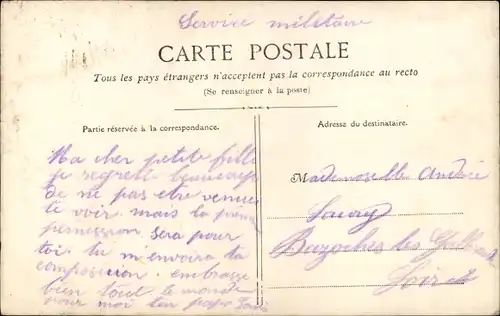 Service militaire
CARTE POSTALE
Tous les pays étrangers n'acceptent pas la correspondance au recto
(Se renseigner à la poste)
Partie réservée à la correspondance.
Adresse du destinataire.
Ma cher petite fille
je regrette beaucoup
de ne pas etre venue
te voir mais la
permission sera pour
toi tu m'envoira ta
composicion embrasse
bien tout le monde
pour moi ton papa
Mademoiselle Andrée
Bazoches les
Loiret